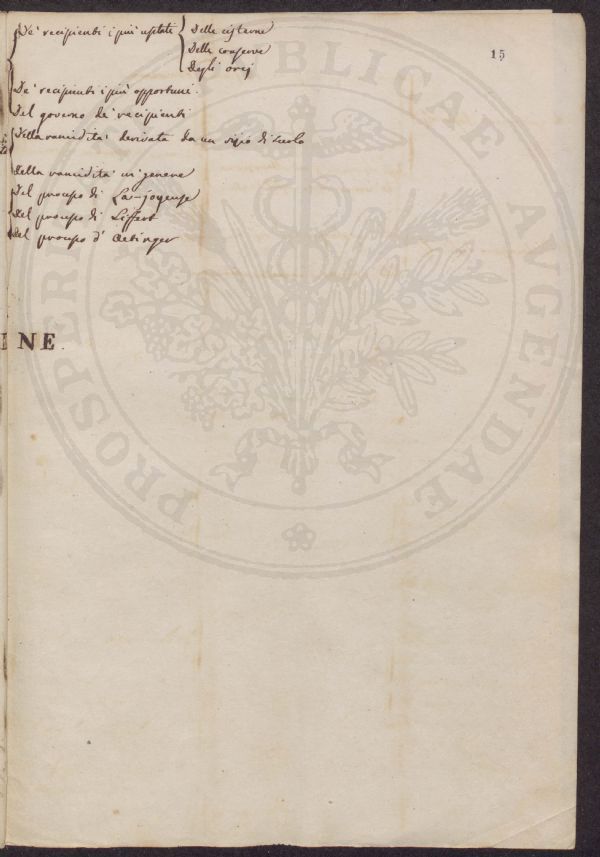 De' recipienti i più usitati { Delle cisterne
Delle conserve
Degli orcj
15
De' recipienti i più opportuni.
Del governo de' recipienti
Della rancidità derivata da un vizio di suolo
della rancidità in genere
Del processo di La-joyeuse
del processo di Siffert
del processo d' Oetinger
NE.
PROSPERITATI PUBLICAE AVGENDAE